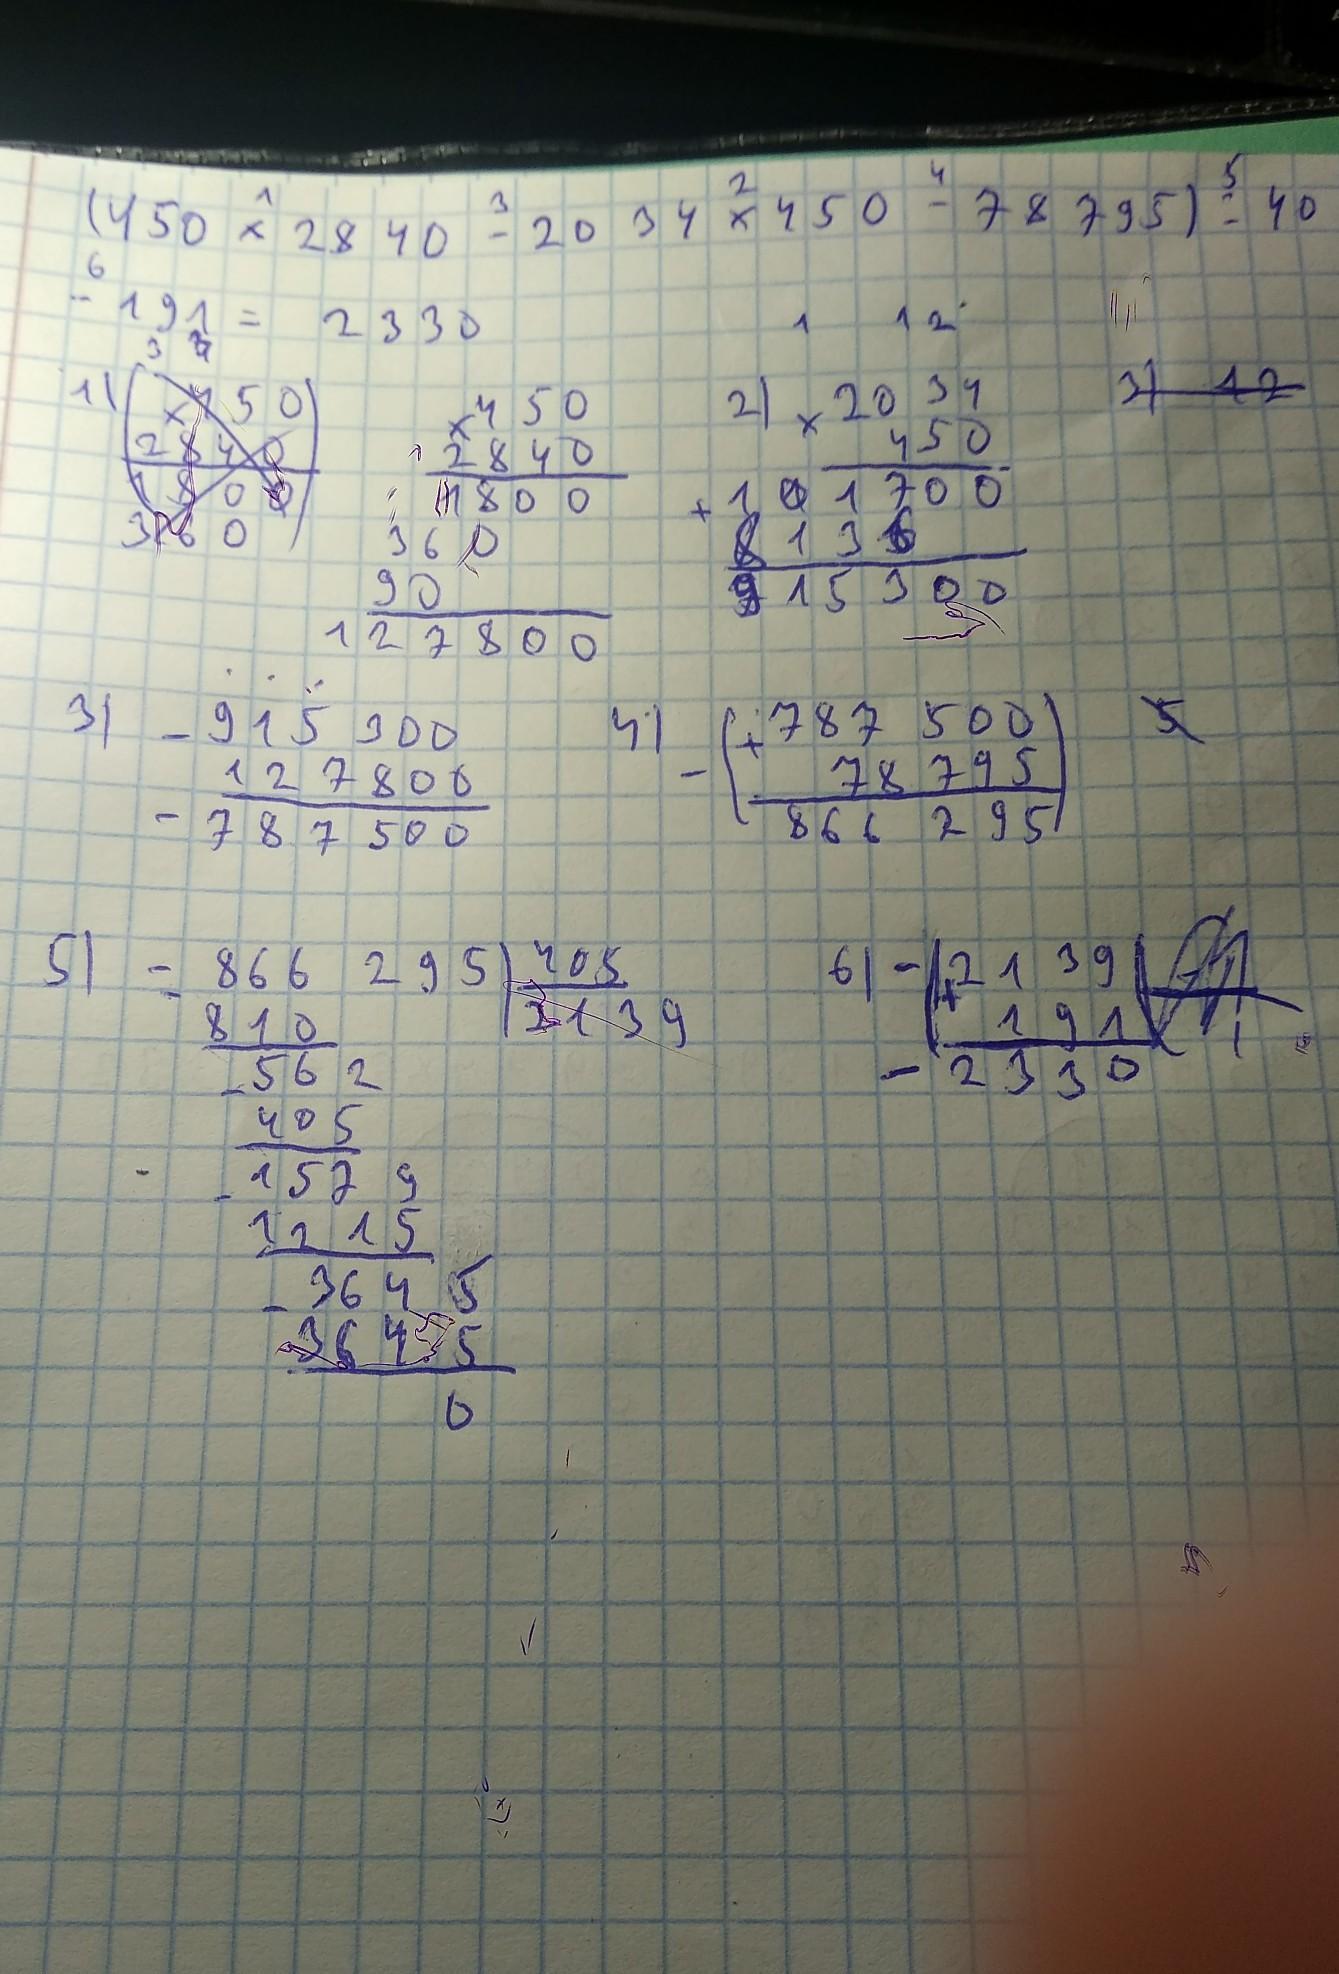 1 3 2 4 5
(450 × 2840 - 2034 × 450 - 78795) : 40
6
- 191 = 2330
3
1 12
1) ×450
2840
1800
360
×450
2840
1800
360
90
127800
2) ×2034
450
+101700
8136
915300
3) 12
3) -915 300
127800
-787500
4) -(+787 500)
78 795
866 295
5
5) -866 295 | 405
810 2139
-562
405
-1579
1215
-3645
3645
0
6) -(+2139)
191
-2330